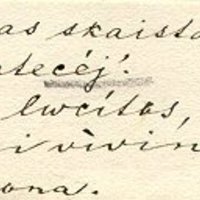 as skaista
tecēj!
lwcitas,
i vivin
ona.